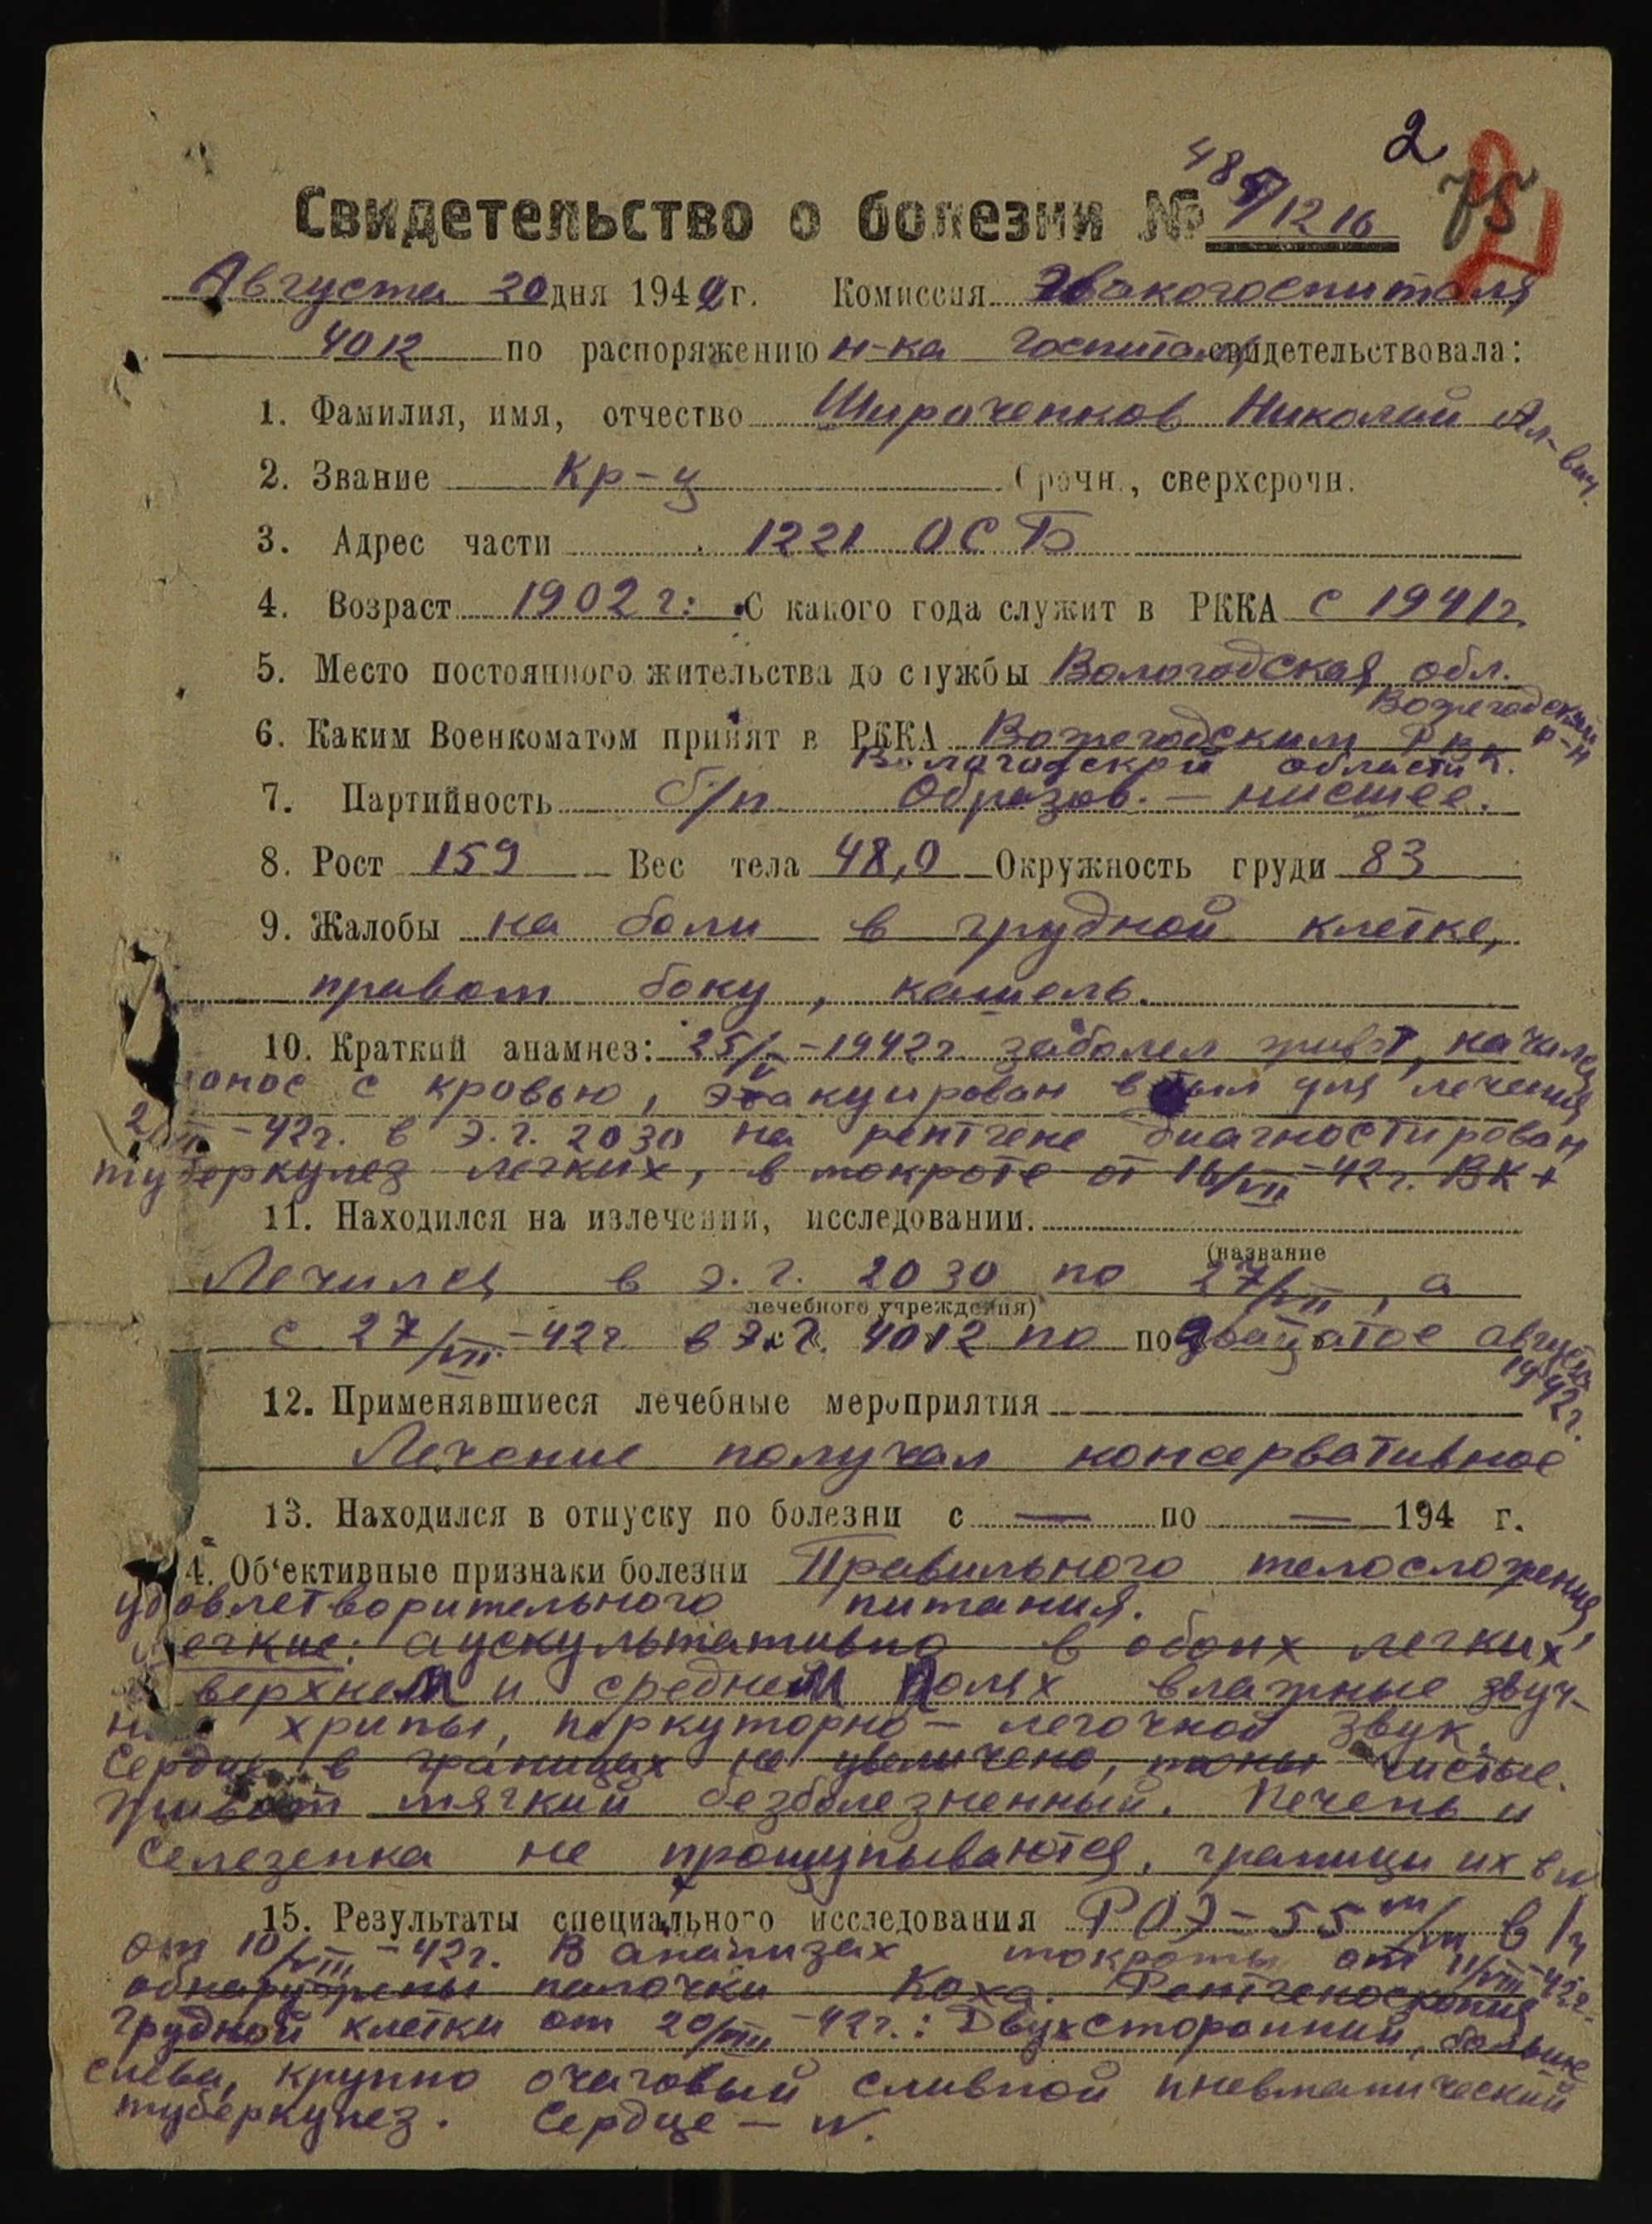 2
75
Свидетельство о болезни № 485/1216
Августа 20 дня 1942 г. Комиссия Эвакогоспиталя
4012 по распоряжению н-ка госпиталя свидетельствовала:
1. Фамилия, имя, отчество Николай Ал-вич.
2. Звание Кр-ц Срочн., сверхсрочн.
3. Адрес части 1221 ОСБ
4. Возраст 1902 г. С какого года служит в РККА с 1941 г.
5. Место постоянного жительства до службы Вологодская обл.
Вожегодский р-н
6. Каким Военкоматом принят в РККА Вожегодским РВК
Вологодской области
7. Партийность б/п Образов. – низшее.
8. Рост 159 Вес тела 48,0 Окружность груди 83
9. Жалобы на боли в грудной клетке,
правом боку, кашель.
10. Краткий анамнез: 25/V-1942 г. заболел живот, начался
понос с кровью, эвакуирован в тыл для лечения
-42 г. в Э.Г. 2030 на рентгене диагностирован
туберкулез легких, в мокроте от 16/VII-42 г. ВК+
11. Находился на излечении, исследовании.
(название
Лечился в Э.Г. 2030 по 27/VII, а
лечебного учреждения)
с 27/VII-42 г. в Э.Г. 4012 по по двадцатое августа
1942 г.
12. Применявшиеся лечебные мероприятия
Лечение получал консервативное
13. Находился в отпуску по болезни с — по — 194 г.
14. Об'ективные признаки болезни Правильного телосложения,
удовлетворительного питания.
Легкие: аускультативно в обоих легких
верхнем и среднем полях влажные звуч-
ные хрипы, перкуторно – легочной звук.
Сердце в границах не увеличено, тоны чистые.
Живот мягкий безболезненный. Печень и
Селезенка не прощупываются, границы их в N
15. Результаты специального исследования РОЭ – 55 m/m в 1 ч
от 10/VIII-42 г. В анализах мокроты от 11/VIII-42 г.
обнаружены палочки Коха. Рентгеноскопия
грудной клетки от 20/VIII-42 г.: Двухсторонний, больше
слева, крупно очаговый сливной пневматический
туберкулез. Сердце – N.